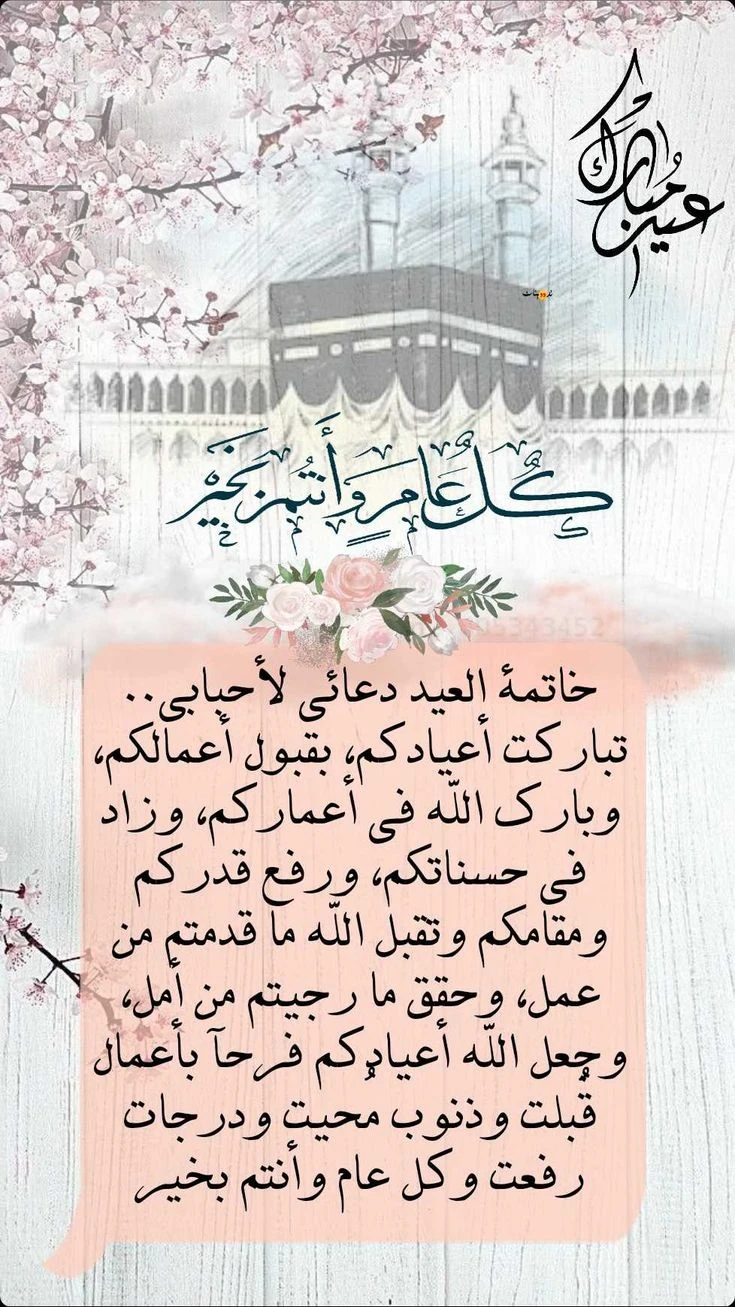 عيد مبارك
كُلُّ عَامٍ وَأَنتُم بِخَيْر
5343452
خاتمة العيد دعائي لأحبابي..
تباركت أعيادكم، بقبول أعمالكم،
وبارك اللّه في أعماركم، وزاد
في حسناتكم، ورفع قدركم
ومقامكم وتقبل اللّه ما قدمتم من
عمل، وحقق ما رجيتم من أمل،
وجعل اللّه أعيادكم فرحآ بأعمال
قُبلت وذنوب مُحيت ودرجات
رفعت وكل عام وأنتم بخير